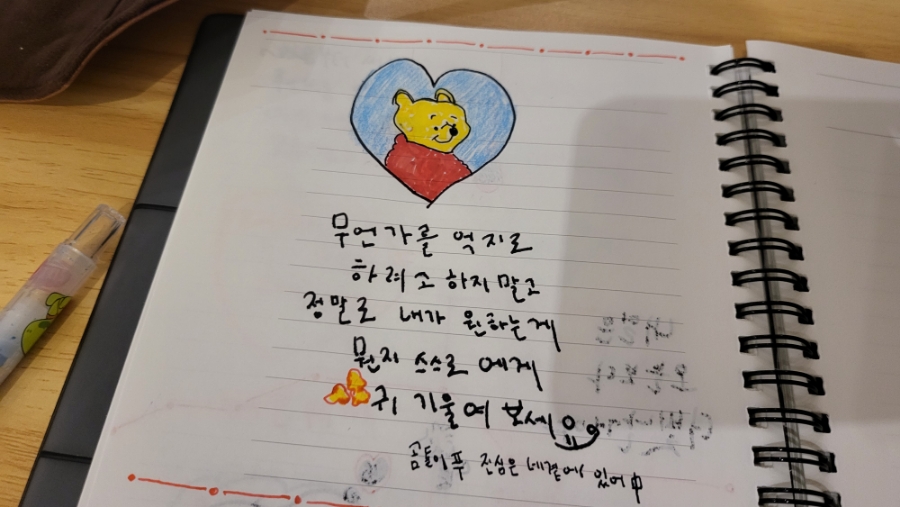 무언가를 억지로
하려고 하지말고
정말로 내가 원하는게
뭔지 스스로에게
귀 기울여 보세요
곰돌이푸 진심은 네곁에 있어 中